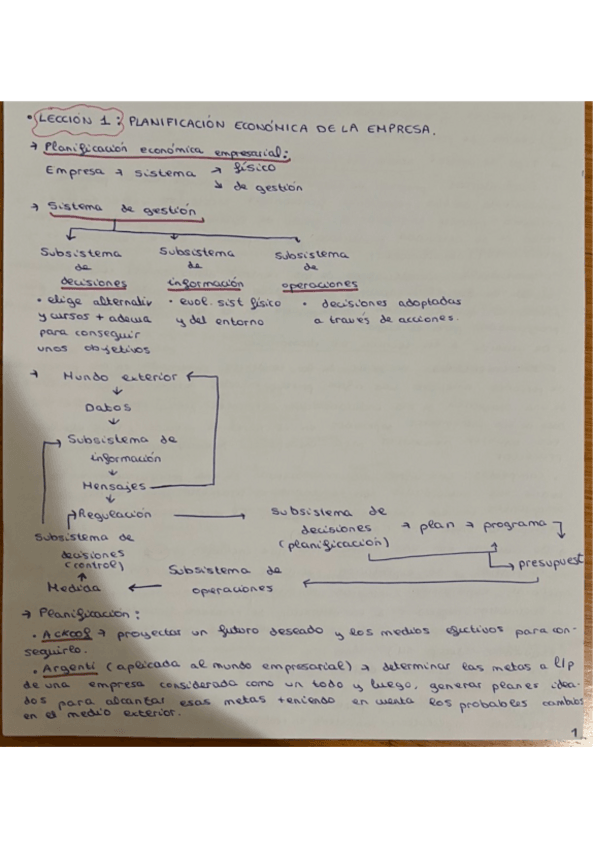 • LECCIÓN 1: PLANIFICACIÓN ECONÓMICA DE LA EMPRESA.
→ Planificación económica empresarial:
Empresa → sistema → físico
↘ de gestión
→ Sistema de gestión
Subsistema de decisiones
• elige alternativ y cursos + adewa para conseguir unos objetivos
Subsistema de información
• evol. sist físico y del entorno
Subsistema de operaciones
• decisiones adoptadas a través de acciones.
→ Mundo exterior
↓
Datos
↓
Subsistema de
información
↓
Mensajes
↓
Regulación → Subsistema de decisiones (planificación) → plan → programa
presupuest
Subsistema de operaciones
← Medida
Subsistema de decisiones (control)
→ Planificación:
• Ackoof → proyectar un futuro deseado y los medios efectivos para con-
seguirlo.
• Argenti (aplicada al mundo empresarial) → determinar las metas a l/p
de una empresa considerada como un todo y luego, generar planes idea-
dos para alcanzar esas metas teniendo en cuenta los probables cambios
en el medio exterior.
1